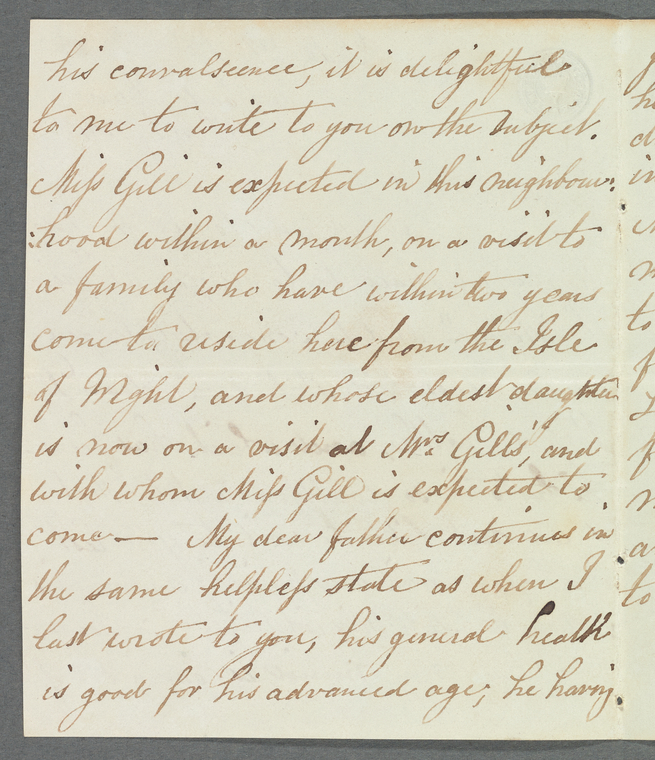 his convalscence, it is delightful
to me to write to you on the subject.
Miſs Gill is expected in this neighbour:
:hood within a month, on a visit to
a family who have within two years
come to reside here from the Isle
of Wight, and whose eldest daughter
is now on a visit at Mrs. Gills', and
with whom Miſs Gill is expected to
come — My dear father continues in
the same helpleſs state as when I
last wrote to you, his general health
is good for his advanced age; he having